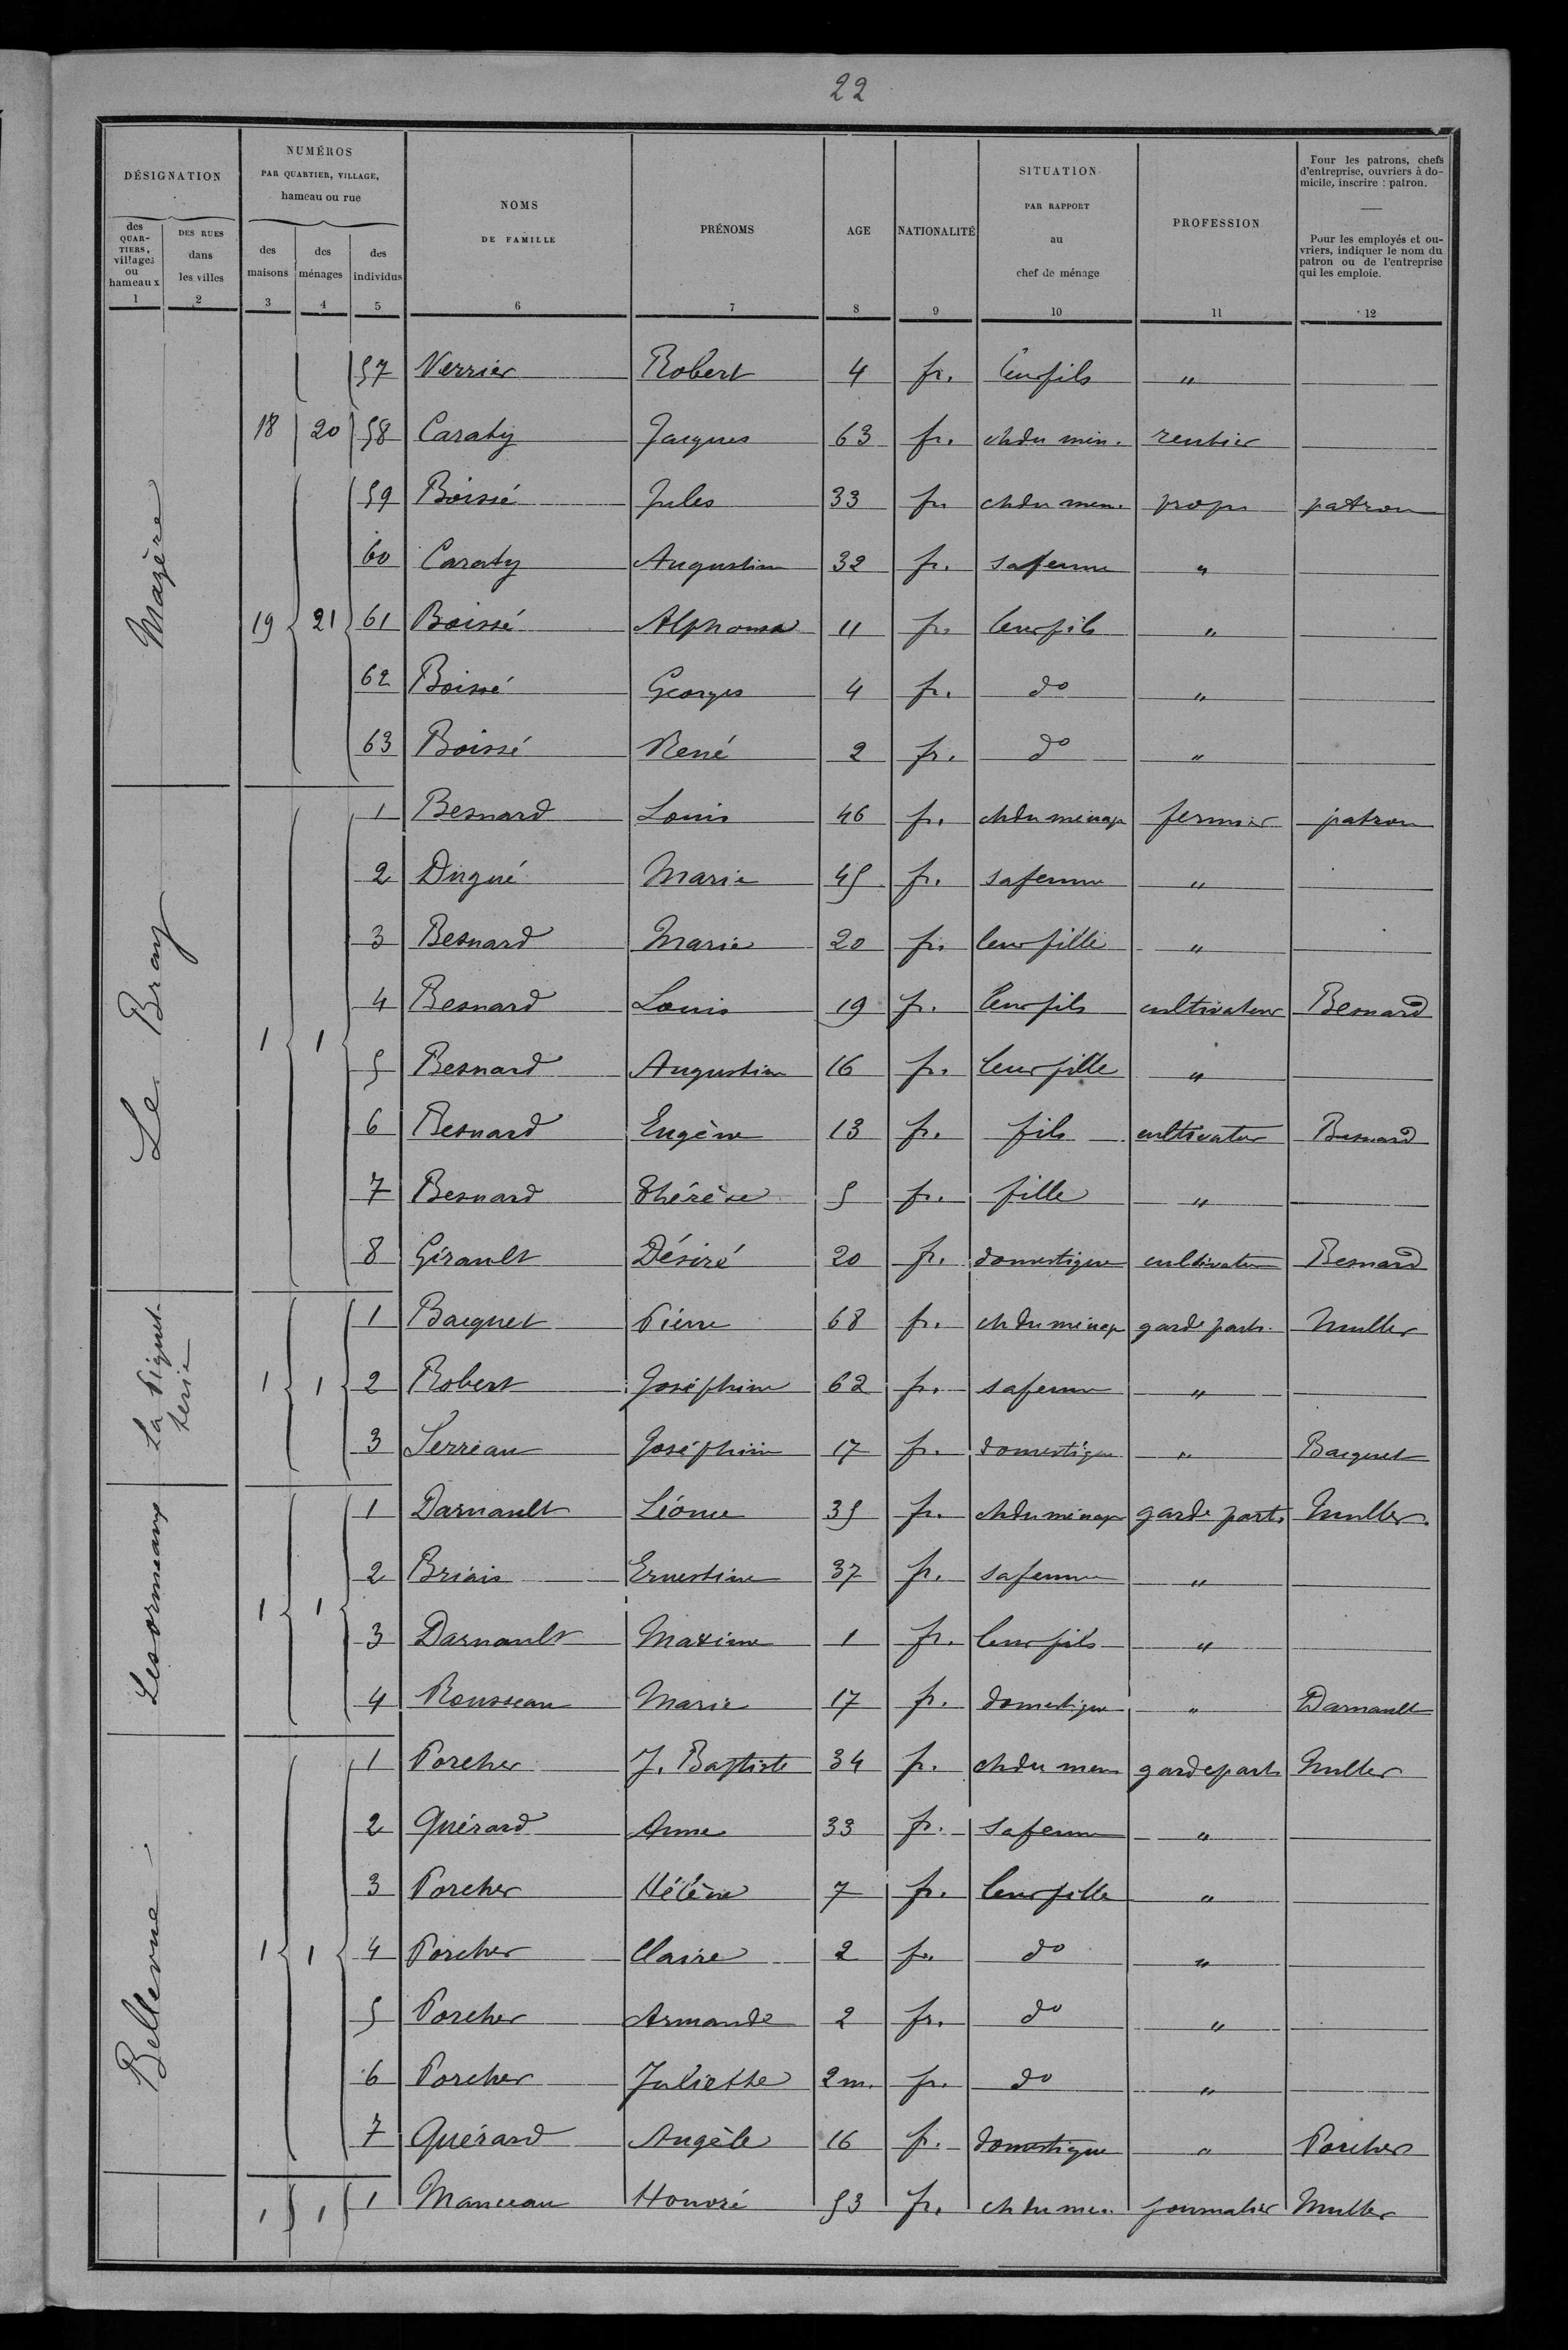 22
DÉSIGNATION
NUMÉROS
PAR QUARTIER, VILLAGE,
hameau ou rue
des QUARTIERS, villages ou hameaux
DES RUES dans les villes
des maisons
des ménages
des individus
NOMS DE FAMILLE
PRÉNOMS
AGE
NATIONALITÉ
SITUATION PAR RAPPORT au chef de ménage
PROFESSION
Pour les patrons, chefs d'entreprise, ouvriers à domicile, inscrire : patron.
Pour les employés et ouvriers, indiquer le nom du patron ou de l'entreprise qui les emploie.
1 2 3 4 5 6 7 8 9 10 11 12
Mazère
57 Verrier Robert 4 fr. leur fils "
18 20 58 Caraty Jacques 63 fr. ch du mén. rentier
59 Boissé Jules 33 fr. ch du mén. propr patron
60 Caraty Augustine 32 fr. sa femme "
19 21 61 Boissé Alphonse 11 fr. leur fils "
62 Boissé Georges 4 fr. do "
63 Boissé René 2 fr. do "
Le Bray
1 Besnard Louis 46 fr. ch du ménage fermier patron
2 Dugué Marie 45 fr. sa femme "
3 Besnard Marie 20 fr. leur fille "
4 Besnard Louis 19 fr. leur fils cultivateur Besnard
1 1 5 Besnard Augustine 16 fr. leur fille "
6 Besnard Eugène 13 fr. fils cultivateur Besnard
7 Besnard Thérèse 5 fr. fille "
8 Girault Désiré 20 fr. domestique cultivateur Besnard
La
1 Bacquet Pierre 68 fr. ch du ménage garde part. Muller
1 1 2 Robert Joséphine 62 fr. sa femme "
3 Serreau Joséphine 17 fr. domestique " Bacquet
Les ormeaux
1 Darnault Léonce 35 fr. ch du ménage garde part. Muller
2 Briais Ernestine 37 fr. sa femme "
1 1 3 Darnault Maxime 1 fr. leur fils "
4 Rousseau Marie 17 fr. domestique " Darnault
Bellevue
1 Porcher J. Baptiste 34 fr. ch du men garde part. Muller
2 Guérard Anne 33 fr. sa femme "
3 Porcher Hélène 7 fr. leur fille "
1 1 4 Porcher Claire 2 fr. do "
5 Porcher Armande 2 fr. do "
6 Porcher Juliette 2 m. fr. do "
7 Guérard Angèle 16 fr. domestique " Porcher
1 1 1 Manceau Honoré 53 fr. ch du men. journalier Muller